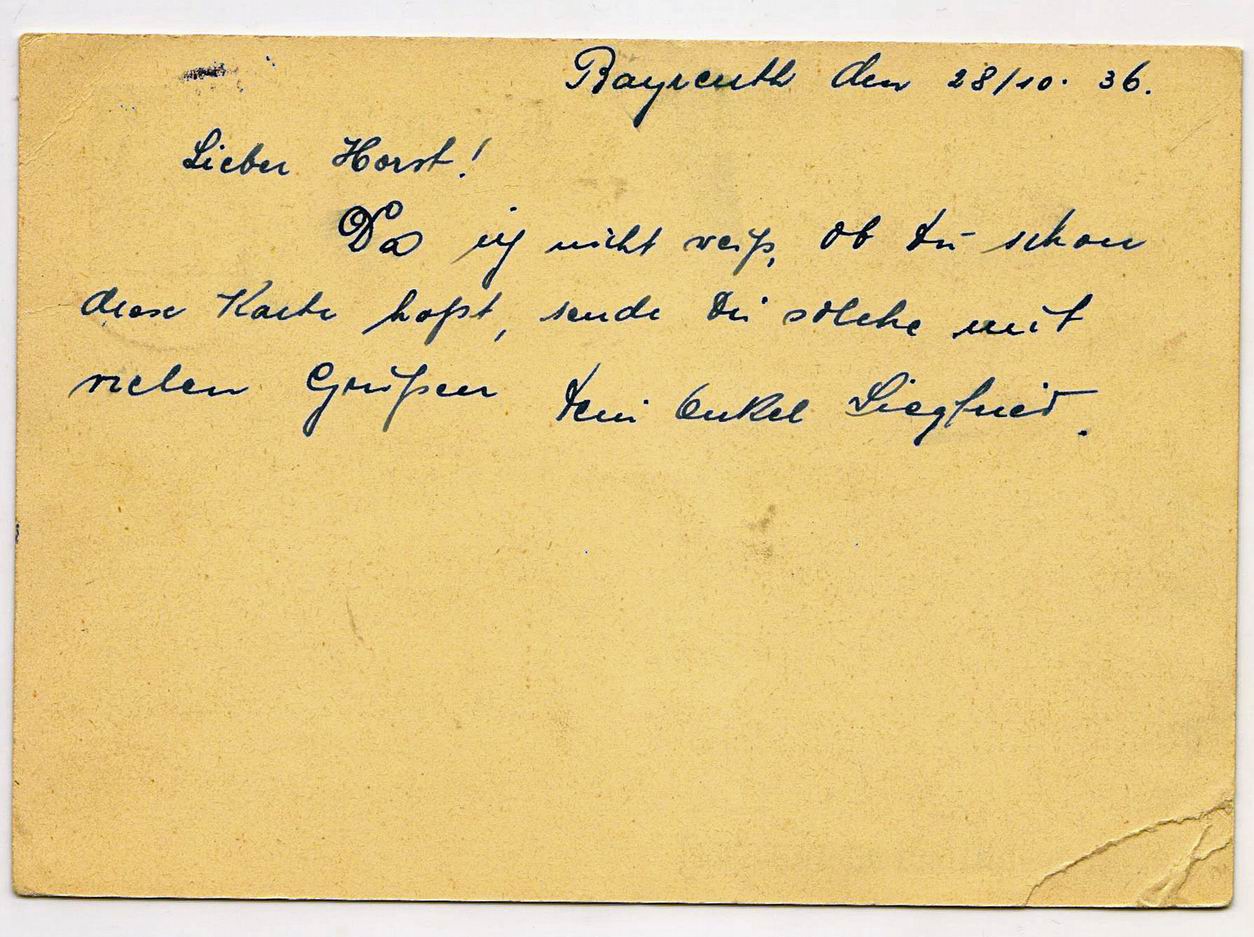 Bayreuth den 28/10. 36.
Lieber Horst!
Da ich nicht weiß, ob Du schon
diese Karte haßt, sende Dir solche mit
vielen Grüßen Dein Onkel Siegfried.